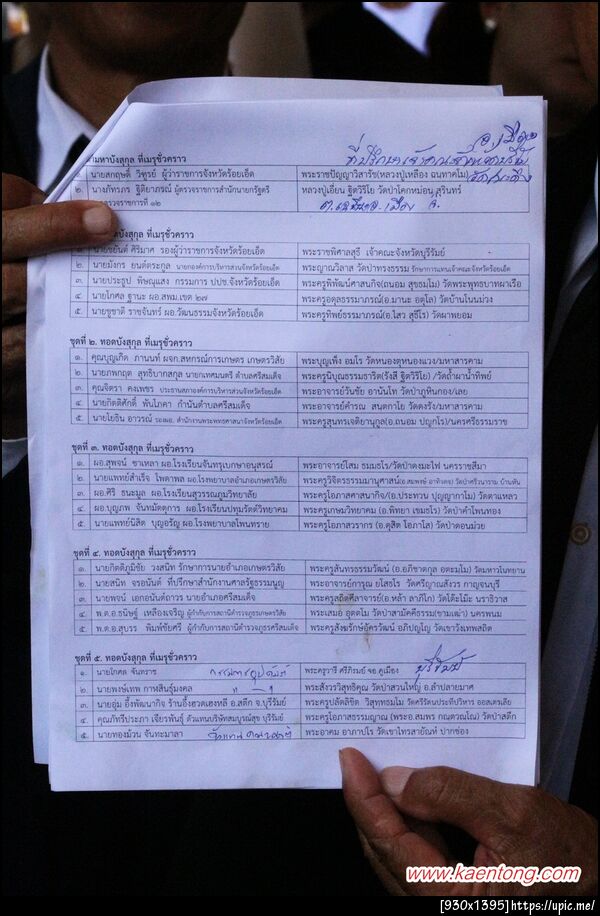 มหาบังสุกุล ที่เมรุชั่วคราว
ที่ปรึกษาเจ้าคณะ
นายสกฤษดิ์ วิฑูรย์ ผู้ว่าราชการจังหวัดร้อยเอ็ด พระราชปัญญาวิสารัช(หลวงปู่เหลือง ฉนฺทาคโม)
๒. นางภัทรภร ฐิติยาภรณ์ ผู้ตรวจราชการสำนักนายกรัฐตรี หลวงปู่เอี่ยน ฐิตวิริโย วัดป่าโคกหม่อน สุรินทร์
ตรวจราชการที่ ๑๒
ทอดบังสุกุล ที่เมรุชั่วคราว
นายชยันต์ ศิริมาศ รองผู้ว่าราชการจังหวัดร้อยเอ็ด พระราชพิศาลสุธี เจ้าคณะจังหวัดบุรีรัมย์
๒. นายมังกร ยนต์ตระกูล นายกองค์การบริหารส่วนจังหวัดร้อยเอ็ด พระญาณวิลาส วัดป่าทรงธรรม รักษาการแทนเจ้าคณะจังหวัดร้อยเอ็ด
๓. นายประธูป พิษณุแสง กรรมการ ปปช.จังหวัดร้อยเอ็ด พระครูพิพัฒน์ศาสนกิจ(ถนอม สุขธมฺโม) วัดพระพุทธบาทผาเรือ
๔. นายโกศล ฐานะ ผอ.สพม.เขต ๒๗ พระครูอดุลธรรมาภรณ์(อ.มานะ อตุโล) วัดบ้านโนนม่วง
๕. นายชูชาติ ราชจันทร์ ผอ.วัฒนธรรมจังหวัดร้อยเอ็ด พระครูทิพย์ธรรมาภรณ์(อ.ไสว สุธีโร) วัดผาพยอม
ชุดที่ ๒. ทอดบังสุกุล ที่เมรุชั่วคราว
๑. คุณบุญเกิด ภานนท์ ผจก.สหกรณ์การเกษตร เกษตรวิสัย พระบุญเพ็ง อมโร วัดหนองตุหนองแวง/มหาสารคาม
๒. นายภพกฤต สุทธิบากสกุล นายกเทศมนตรี ตำบลศรีสมเด็จ พระครูนิบุณธรรมธาริต(รังสี ฐิตวิริโย) /วัดถ้ำผาน้ำทิพย์
๓. คุณจิตรา คงเพชร ประธานสภาองค์การบริหารส่วนจังหวัดร้อยเอ็ด พระอาจารย์วันชัย อานันโท วัดป่าภูหินกอง/เลย
๔. นายกิตติศักดิ์ พันโภคา กำนันตำบลศรีสมเด็จ พระอาจารย์คำรณ สนตกาโย วัดดงรัง/มหาสารคาม
๕. นายโยธิน อาวรณ์ รองผอ. สำนักงานพระพุทธศาสนาจังหวัดร้อยเอ็ด พระครูสุนทรเจติยานุกูล(อ.ถนอม ปญฺกโร)/นครศรีธรรมราช
ชุดที่ ๓. ทอดบังสุกุล ที่เมรุชั่วคราว
๑. ผอ.สุพจน์ ซาเหลา ผอ.โรงเรียนจันทรุเบกษาอนุสรณ์ พระอาจารย์โสม ธมมธโร/วัดป่าดงมะไฟ นครราชสีมา
๒. นายแพทย์สำเร็จ โพดาพล ผอ.โรงพยาบาลอำเภอเกษตรวิสัย พระครูวิจิตรธรรมมานุศาสน์
๓. ผอ.ศิริ ธนะมูล ผอ.โรงเรียนสุวรรณภูมิวิทยาลัย พระครูโอภาสศาสนากิจ/(อ.ประทวน ปุญญากาโม) วัดดาแหลว
๔. ผอ.บุญภพ จันทมัตตุการ ผอ.โรงเรียนปทุมรัตต์วิทยาคม พระครูเกษมวิทยาคม (อ.พิทยา เขมธโร) วัดป่าคำโพนทอง
๕. นายแพทย์นิสิต บุญอรัญ ผอ.โรงพยาบาลโพนทราย พระครูโอภาสวรากร (อ.ดุสิต โอภาโส) วัดป่าดอนม่วย
ชุดที่ ๔. ทอดบังสุกุล ที่เมรุชั่วคราว
๑. นายกิตติภูมิชัย วงสนิท รักษาการนายอำเภอเกษตรวิสัย พระครูสันทรธรรมวัฒน์ (อ.อภิชาตกุล อตะมฺมโม) วัดมหาวโนทยาน
๒. นายสนิท จรอนันต์ ที่ปรึกษาสำนักงานศาลรัฐธรรมนูญ พระอาจารย์การุณ ยโสธโร วัดศรีญาณสังวร กาญจนบุรี
๓. นายพจน์ เอกอนันต์ถาวร นายอำเภอศรีสมเด็จ พระครูสถิตศีลาจารย์(อ.หล้า ลาภิโก) วัดโต๊ะโม๊ะ นราธิวาส
๔. พ.ต.อ.ธนิษฐ์ เหลืองเจริญ ผู้กำกับการสถานีตำรวจเกษตรวิสัย พระเสมอ อุตตโม วัดป่าสามัคคีธรรม(ขามเฒ่า) นครพนม
๕. พ.ต.อ.สุบรร พิมพ์ชัยศรี ผู้กำกับการสถานีตำรวจภูธรศรีสมเด็จ พระครูสังฆรักษ์อัครวัฒน์ อภิปญฺโญ วัดเขาวังเทพสถิต
ชุดที่ ๕. ทอดบังสุกุล ที่เมรุชั่วคราว
๑. นายโกศล จันทราช พระครูวารี ศรีภิรมย์ จอ.คูเมือง บุรีรัมย์
๒. นายพงษ์เทพ กาฬสินธุ์มงคล พระสังวรวิสุทธิคุณ วัดป่าสวนใหญ่ อ.ลำปลายมาศ
๓. นายอุ่ม อึ้งพัฒนากิจ ร้านอึ้งฮวดเฮงหลี อ.สตึก จ.บุรีรัมย์ พระครูปลัดลิขิต วิสุทฺทธมฺโม วัดศรีรัตนประทีปวิหาร ออสเตรเลีย
๔. คุณภัทรีประภา เจียรพันธุ์ ตัวแทนบริษัทสมบูรณ์สุข บุรีรัมย์ พระครูโอภาสธรรมญาณ (พระอ.สมพร กณตวณฺโณ) วัดป่าสตึก
๕. นายทองม้วน จันทะมาลา พระอาคม อาภาปโร วัดเขาไทรสายัณห์ ปากช่อง
www.kaentong.com
[930x1395]https://upic.me/